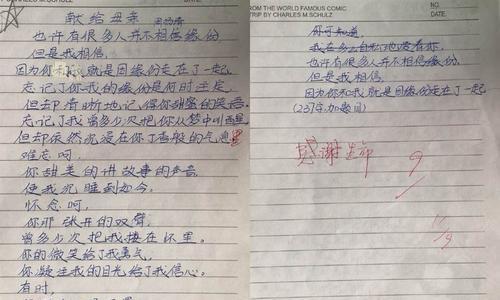 DATE.
献给母亲
也许有很多人并不相信缘份
但是我相信,
因为你和我就是因缘份走在了一起
忘记了你我的缘份是何时注定
但却清晰地记得你甜蜜的笑语。
忘记了我曾多少次把你从梦中叫醒
但却依然沉浸在你了香般的气息里
难忘啊,
你甜美的讲故事的声音
使我沉睡到如今,
怀念啊,
你那张开的双臂
曾多少次把我搂在怀里。
你的微笑给了我勇气,
你凝注我的目光给了我信心。
有时,
FROM THE WORLD FAMOUS COMIC
STRIP BY CHARLES M. SCHULZ
NO.
DATE.
你可知道,
我在多么自私地凑着你,
也许有很多人并不相信缘份,
但是我相信,
因为你和我就是因缘份走在了一起
(237字,加题目)
感谢生命
9